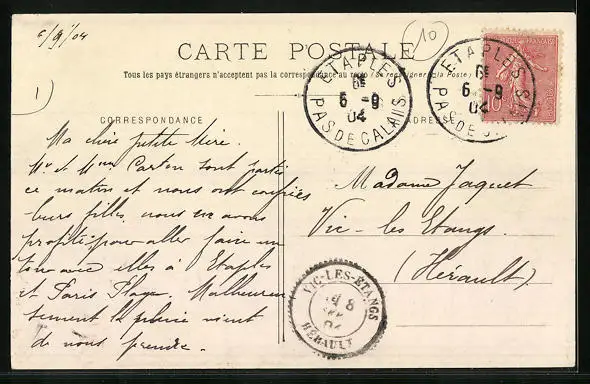 6/9/04
10
CARTE POSTALE
Tous les pays étrangers n'acceptent pas la correspondance au recto (Se renseigner à la Poste)
1
CORRESPONDANCE
ADRESSE
ETAPLES
6 -9
04
PAS DE CALAIS
ETAPLES
6 -9
04
PAS DE
10
Ma chère petite Mère.
Mr et Mme Carton sont partis
ce matin et nous ont confiées
leurs filles, nous en avons
profité pour aller faire un
tour avec elles à Etaples
et Paris Plage. Malheureu
sement la pluie vient
de nous prendre.
Madame Jaquet
Vic-les Etangs.
(Hérault)
VIC-LES-ETANGS
8
04
HERAULT